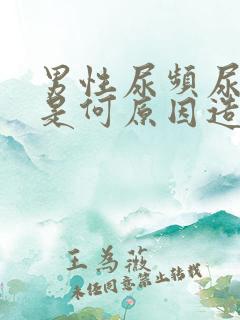 男性尿频尿
是何原因造
王为薇
未经同意禁止转载